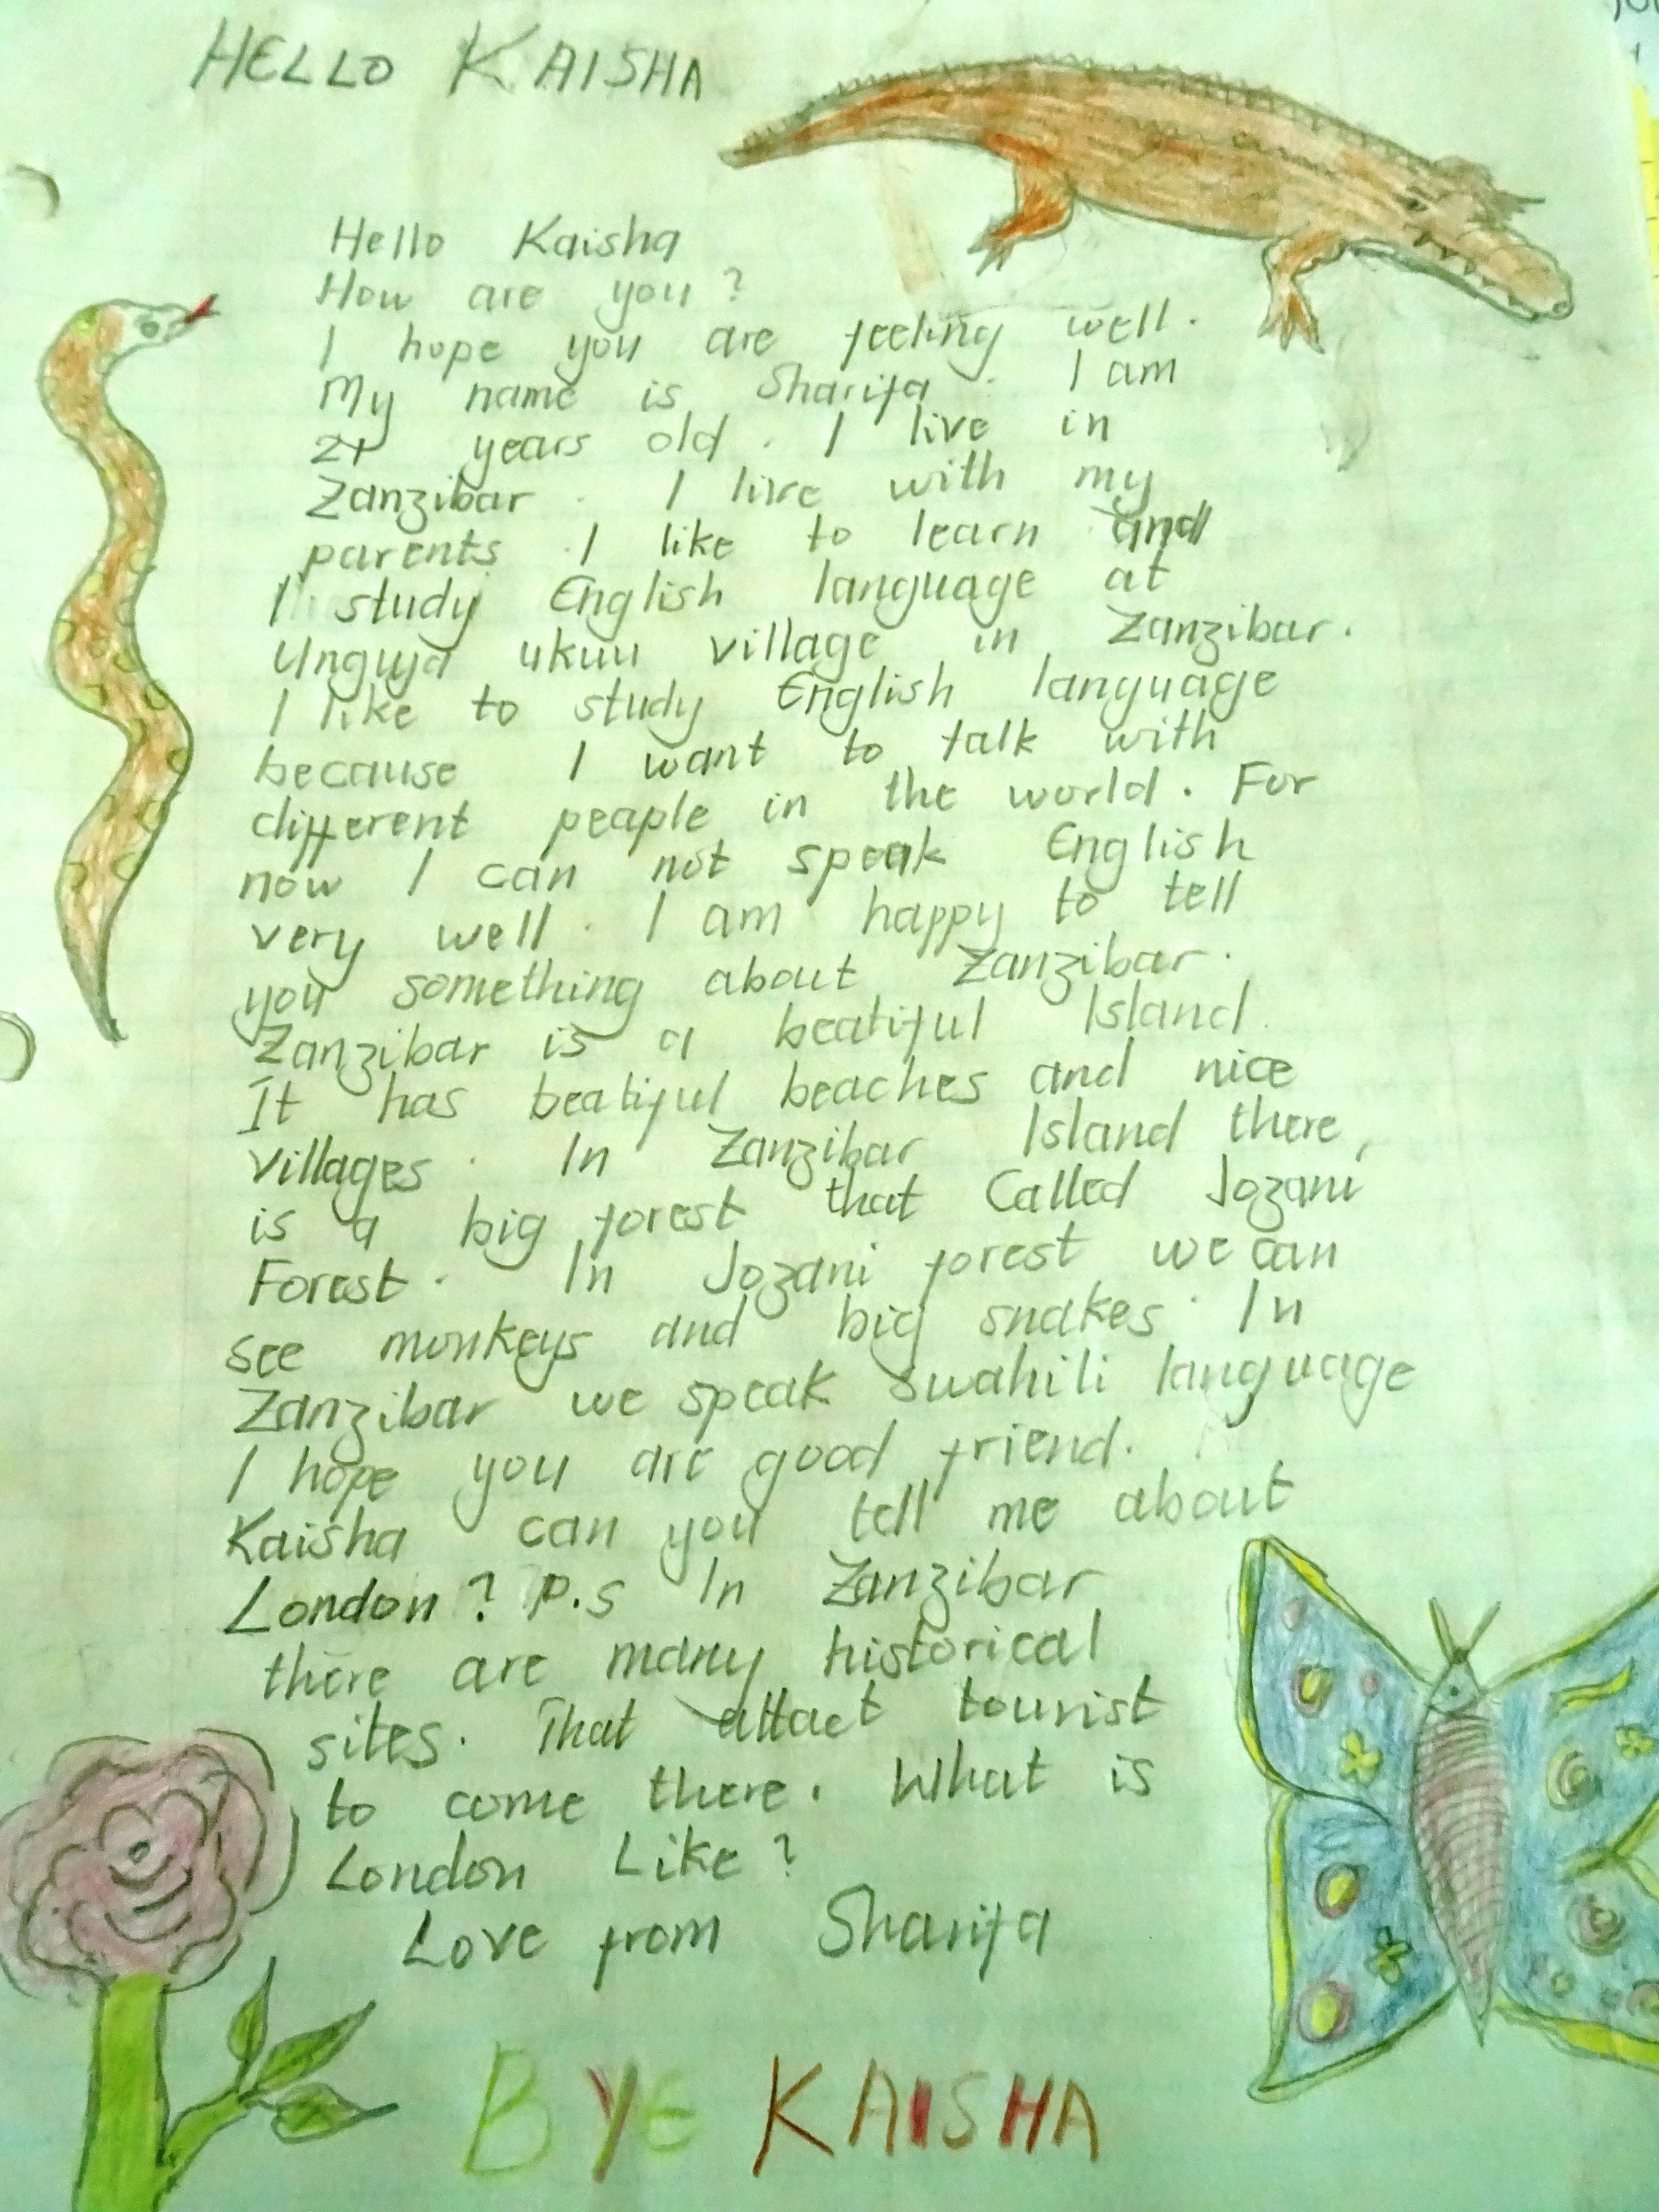 HELLO KAISHA
Hello Kaisha
How are you?
I hope you are feeling well.
My name is Sharifa. I am
years old. I live in
Zanzibar. I live with my
parents. I like to learn and
I study English language at
Unguja ukuu village in Zanzibar.
I like to study English language
because I want to talk with
different peaple in the world. For
now I can not speak English
very well. I am happy to tell
you something about Zanzibar.
Zanzibar is a beatiful Island.
It has beatiful beaches and nice
villages. In Zanzibar Island there,
is a big forest that Called Jozani
Forest. In Jozani forest we can
see monkeys and big snakes. In
Zanzibar we speak Swahili language
I hope you are good friend.
Kaisha can you tell me about
London? P.S In Zanzibar
there are many historical
sites. That attact tourist
to come there. What is
London Like?
Love from Sharifa
BYE KAISHA